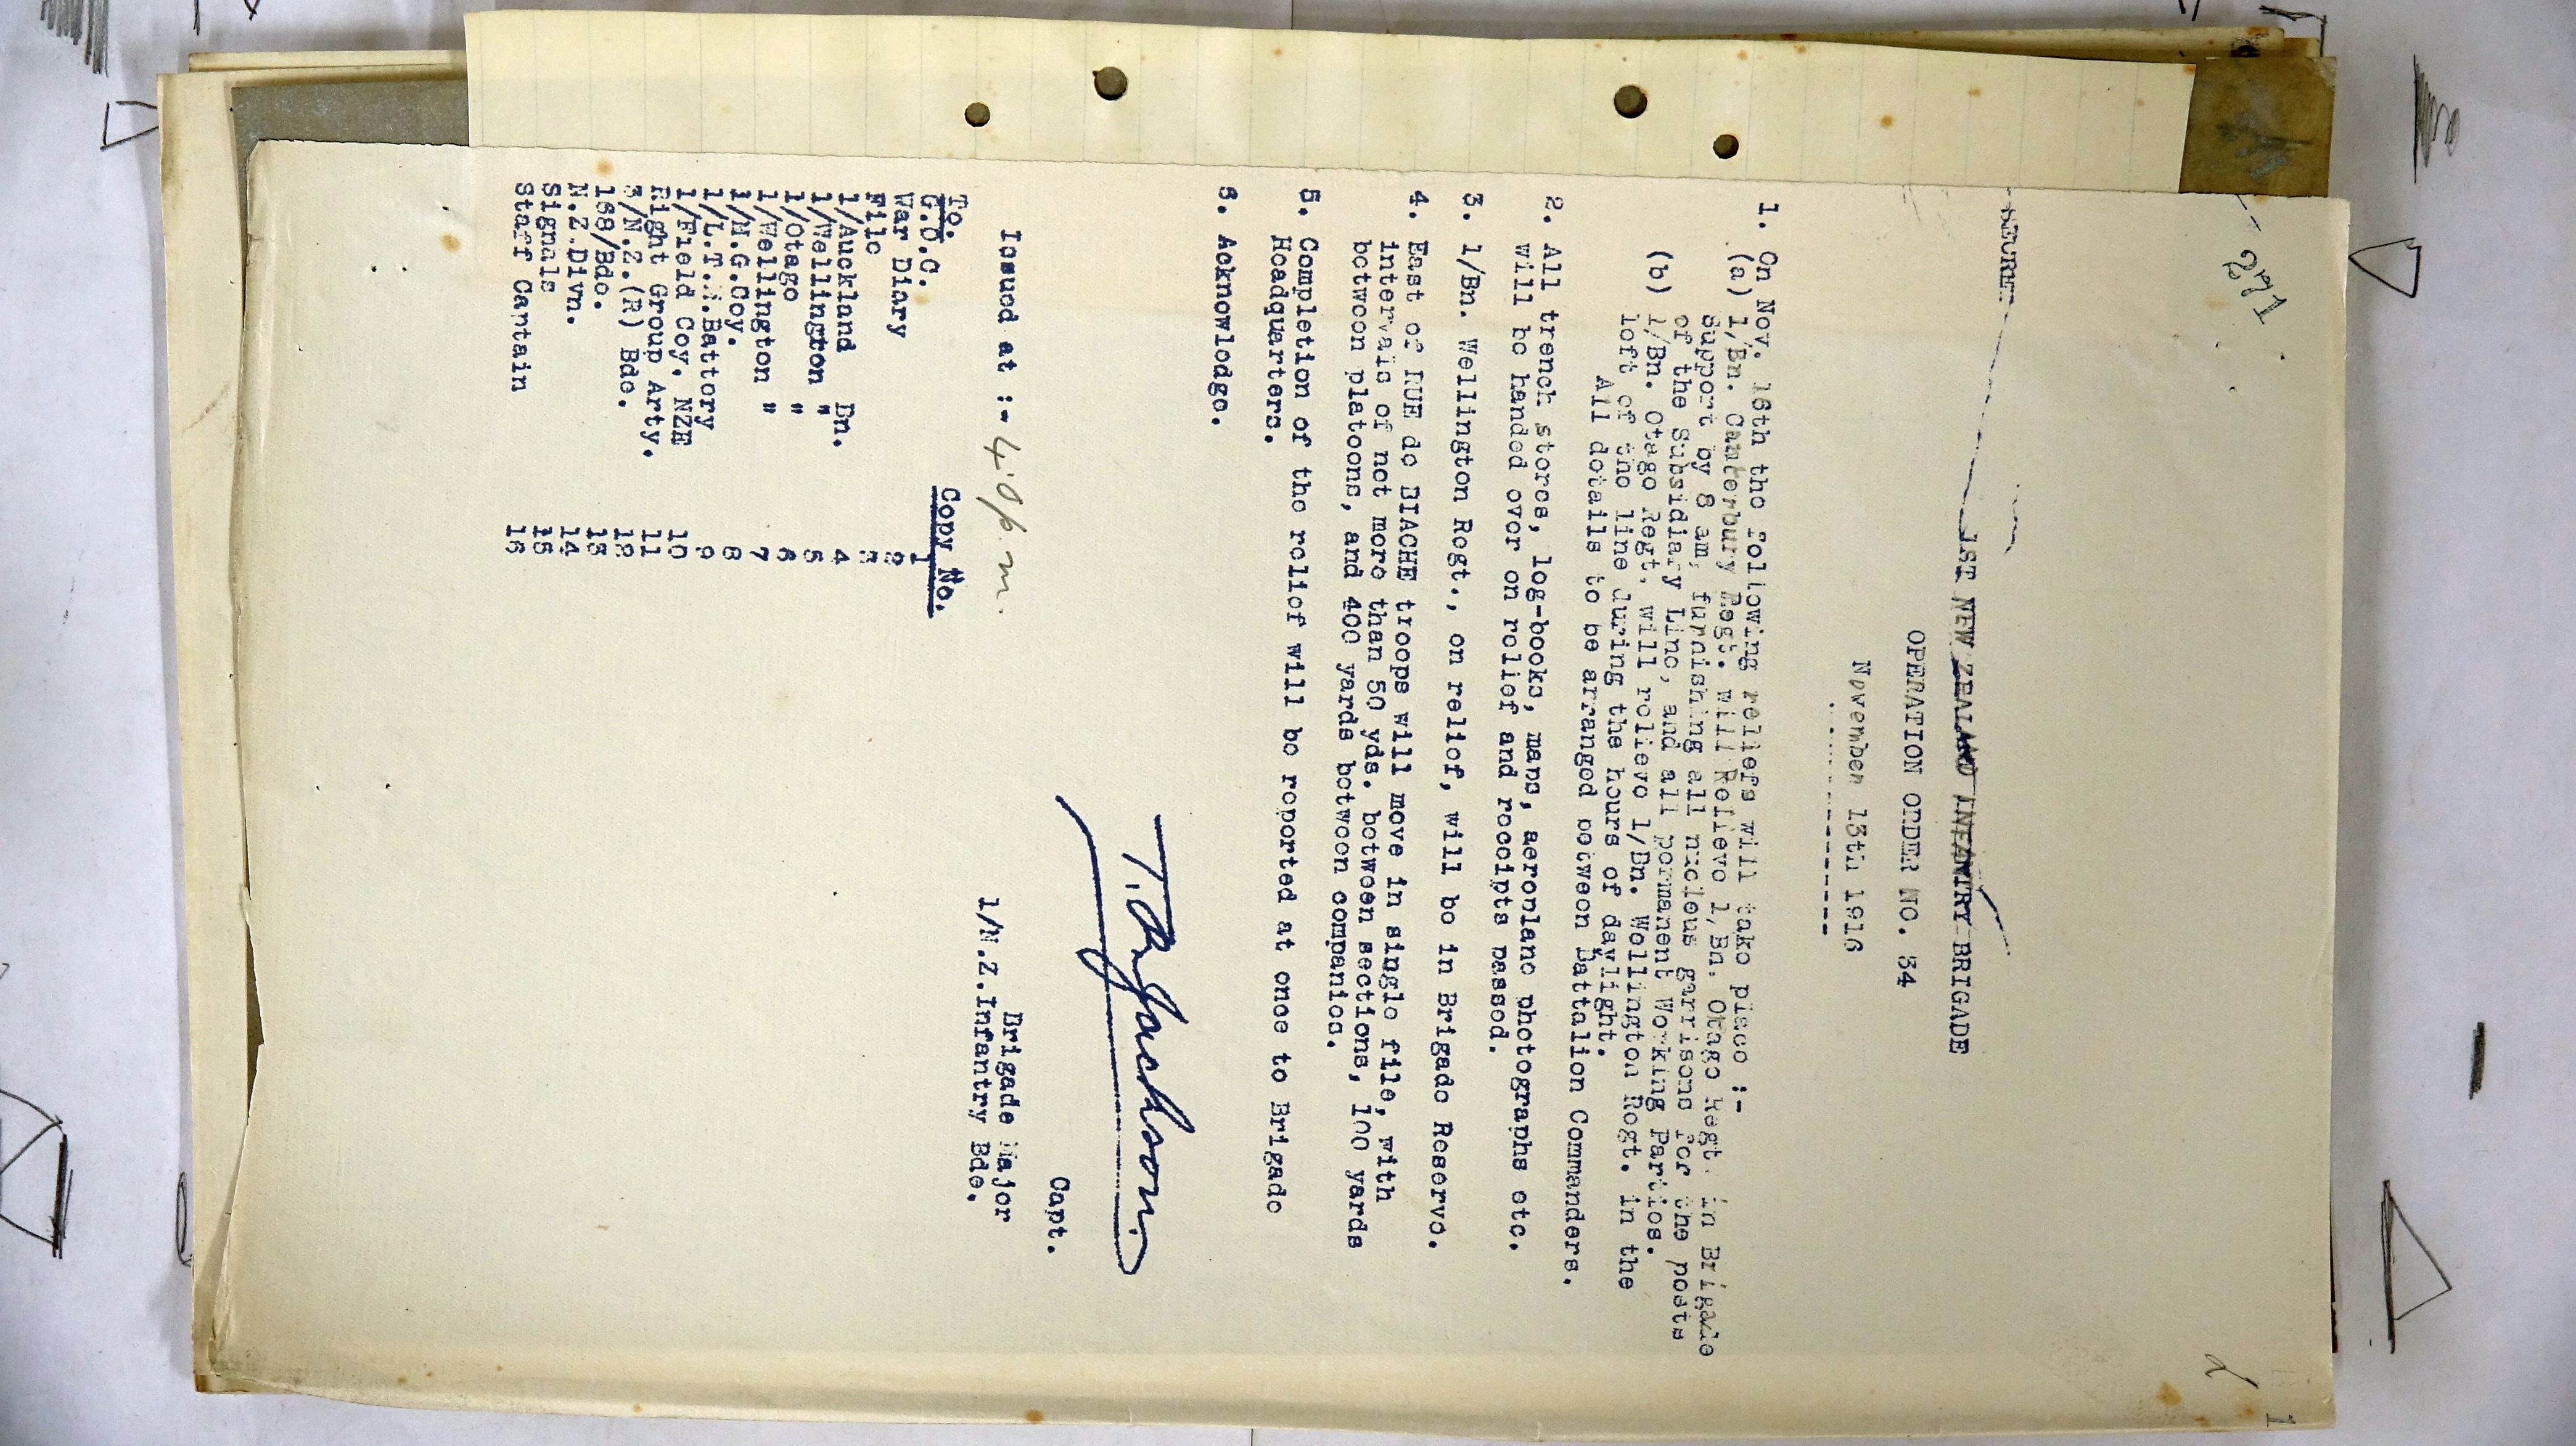 271
SECRET
1ST NEW ZEALAND INFANTRY BRIGADE
OPERATION ORDER NO. 34
November 13th 1916
1. On Nov. 16th the following reliefs will take place :-
(a) 1/Bn. Canterbury Regt. will Relieve 1/Bn. Otago Regt. in Brigade
Support by 8 am, furnishing all nucleus garrisons for the posts
of the Subsidiary Line, and all permanent Working Parties.
(b) 1/Bn. Otago Regt. will relieve 1/Bn. Wellington Regt. in the
left of the line during the hours of daylight.
All details to be arranged between Battalion Commanders.
2. All trench stores, log-books, maps, aeroplane photographs etc.
will be handed over on relief and receipts passed.
3. 1/Bn. Wellington Regt., on relief, will be in Brigade Reserve.
4. East of RUE de BIACHE troops will move in single file, with
intervals of not more than 50 yds. between sections, 100 yards
between platoons, and 400 yards between companies.
5. Completion of the relief will be reported at once to Brigade
Headquarters.
6. Acknowledge.
Capt.
Brigade Major
1/N.Z.Infantry Bde.
Issued at :- 4.0 p.m.
To. Copy No.
G.O.C. 1
War Diary 2
File 3
1/Auckland Bn. 4
1/Wellington " 5
1/Otago " 6
1/Wellington " 7
1/M.G.Coy. 8
1/L.T.M.Battery 9
1/Field Coy. NZE 10
Right Group Arty. 11
3/N.Z.(R) Bde. 12
188/Bde. 13
N.Z.Divn. 14
Signals 15
Staff Captain 16